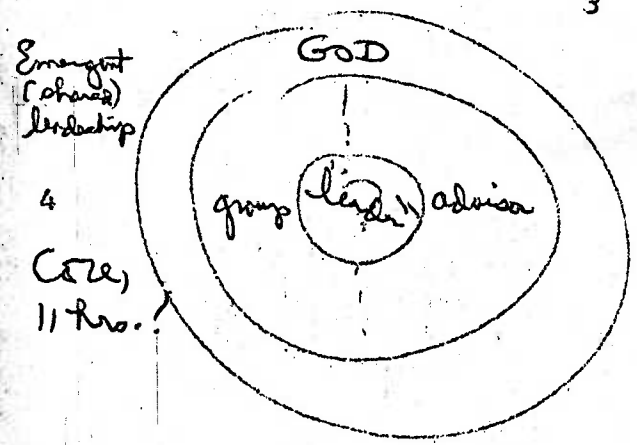 3
Emergent
(shared)
leadership
4
Core,
11 hrs.!
GOD
group "leader" advisor